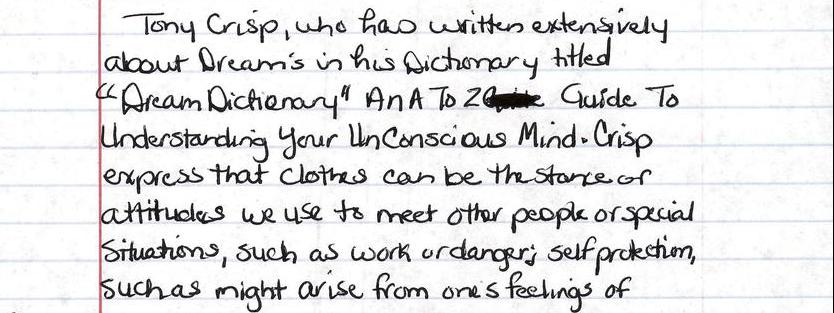 Tony Crisp, who has written extensively
about Dream's in his Dictionary titled
"Dream Dictionary" An A To Z Guide To
Understanding Your UnConscious Mind. Crisp
express that clothes can be the stance or
attitudes we use to meet other people or special
Situations, such as work or danger; self protection,
such as might arise from one's feelings of